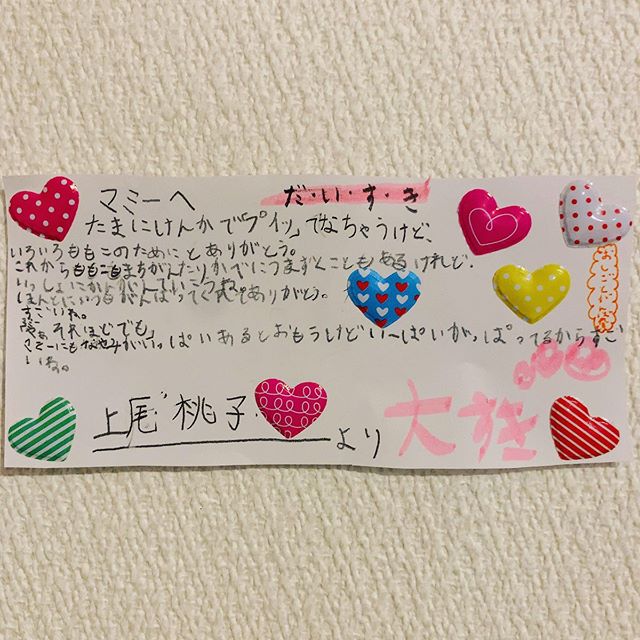 マミーへ
だ・い・す・き
たまにけんかで「プイッ」てなちゃうけど、
いろいろももこのためにとありがとう。
これからもももこもまちがえたりかべにつまずくこともあるけれど、
いっしょにかんがえていこうね。
ほんとにいつもがんばってくれてありがとう。
すごいね。
それほどでも」
マミーにもなやみがいっぱいあるとおもうけどい〜ぱいがっぱってるからすご
いね。
上尾 桃子
より
大すき